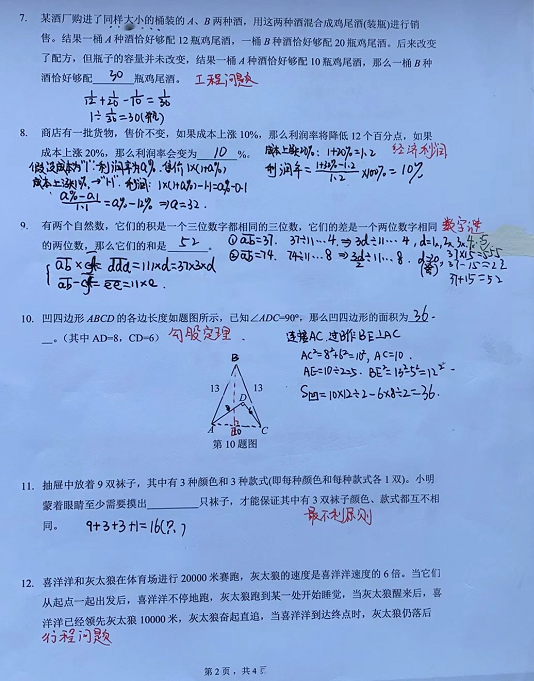 7. 某酒厂购进了同样大小的桶装的 A、B 两种酒，用这两种酒混合成鸡尾酒(装瓶)进行销
售。结果一桶 A 种酒恰好够配 12 瓶鸡尾酒，一桶 B 种酒恰好够配 20 瓶鸡尾酒。后来改变
了配方，但瓶子的容量并未改变，结果一桶 A 种酒恰好够配 10 瓶鸡尾酒，那么一桶 B 种
酒恰好够配 30 瓶鸡尾酒。 工程问题
1/12+1/20-1/10=1/30
1÷1/30=30(瓶)
8. 商店有一批货物，售价不变，如果成本上涨 10%，那么利润率将降低 12 个百分点，如果
成本上涨 20%，那么利润率会变为 10 %。 成本上涨20%：1+20%=1.2 经济利润
假设成本为"1"，利润率为a%，售价1×(1+a%)
利润率=(1+32%-1.2)/1.2×100%=10%
成本上涨10%→"1.1"，利润：1×(1+a%)-1.1=a%-0.1
(a%-0.1)/1.1=a%-12% ⇒a=32.
9. 有两个自然数，它们的积是一个三位数字都相同的三位数，它们的差是一个两位数字相同 数字谜
的两位数，那么它们的和是 52 。 ①ab=37. 37×11…4 ⇒3d÷11…4
②ab=74. 74÷11…8 ⇒
37×15=555
37-15=22
ddd=111×d=37×3×d
ee=11×e.
37+15=52
10. 凹四边形 ABCD 的各边长度如题图所示，已知∠ADC=90°，那么凹四边形的面积为 36
。（其中 AD=8，CD=6） 勾股定理 连接AC，过B作BE⊥AC
AC²=8²+6²=10²，AC=10.
B
AE=10÷2=5. BE²=13²-5²=12²
13 13
S凹=10×12÷2-6×8÷2=36.
D
A C
第 10 题图
11. 抽屉中放着 9 双袜子，其中有 3 种颜色和 3 种款式(即每种颜色和每种款式各 1 双)。小明
蒙着眼睛至少需要摸出 只袜子，才能保证其中有 3 双袜子颜色、款式都互不相
同。 9+3+3+1=16(只) 最不利原则
12. 喜洋洋和灰太狼在体育场进行 20000 米赛跑，灰太狼的速度是喜洋洋速度的 6 倍。当它们
从起点一起出发后，喜洋洋不停地跑，灰太狼跑到某一处开始睡觉，当灰太狼醒来后，喜
洋洋已经领先灰太狼 10000 米，灰太狼奋起直追，当喜洋洋到达终点时，灰太狼仍落后
行程问题
第 2 页，共 4